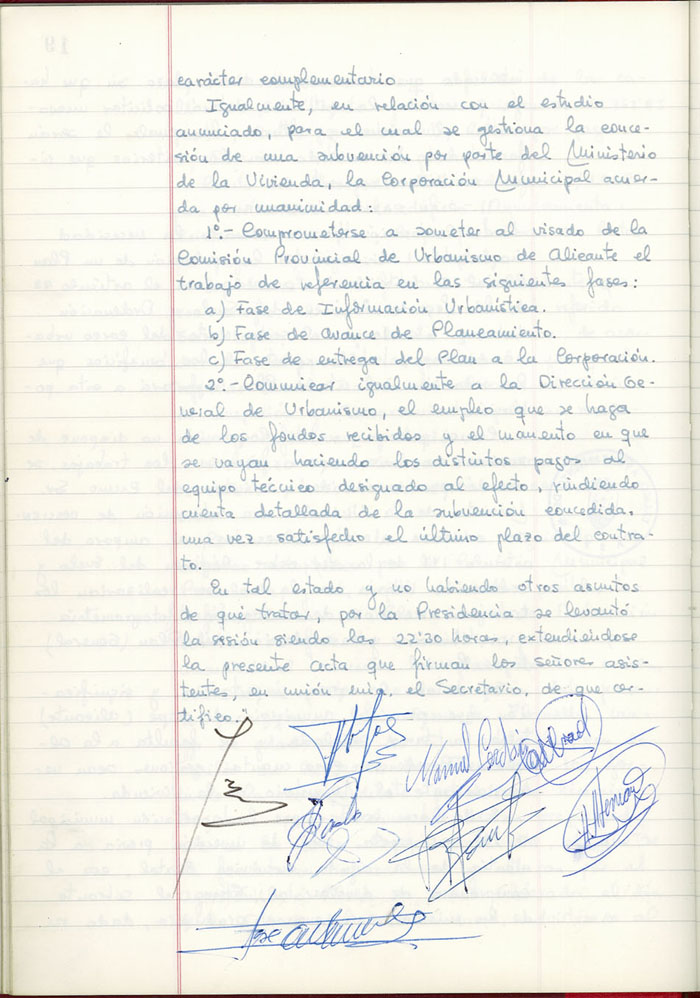 carácter complementario
Igualmente, en relación con el estudio
anunciado, para el cual se gestiona la conce-
sión de una subvención por parte del Ministerio
de la Vivienda, la Corporación Municipal acuer-
da por unanimidad:
1º.- Comprometerse a someter al visado de la
Comisión Provincial de Urbanismo de Alicante el
trabajo de referencia en las siguientes fases:
a) Fase de Información Urbanística.
b) Fase de avance de Planeamiento.
c) Fase de entrega del Plan a la Corporación.
2º.- Comunicar igualmente a la Dirección Ge-
neral de Urbanismo, el empleo que se haga
de los fondos recibidos y el momento en que
se vayan haciendo los distintos pagos al
equipo técnico designado al efecto, rindiendo
cuenta detallada de la subvención concedida,
una vez satisfecho el último plazo del contra-
to.
En tal estado y no habiendo otros asuntos
de qué tratar, por la Presidencia se levantó
la sesión siendo las 22'30 horas, extendiéndose
la presente acta que firman los señores asis-
tentes, en unión mía, el Secretario, de que cer-
tifico.
Manuel
José